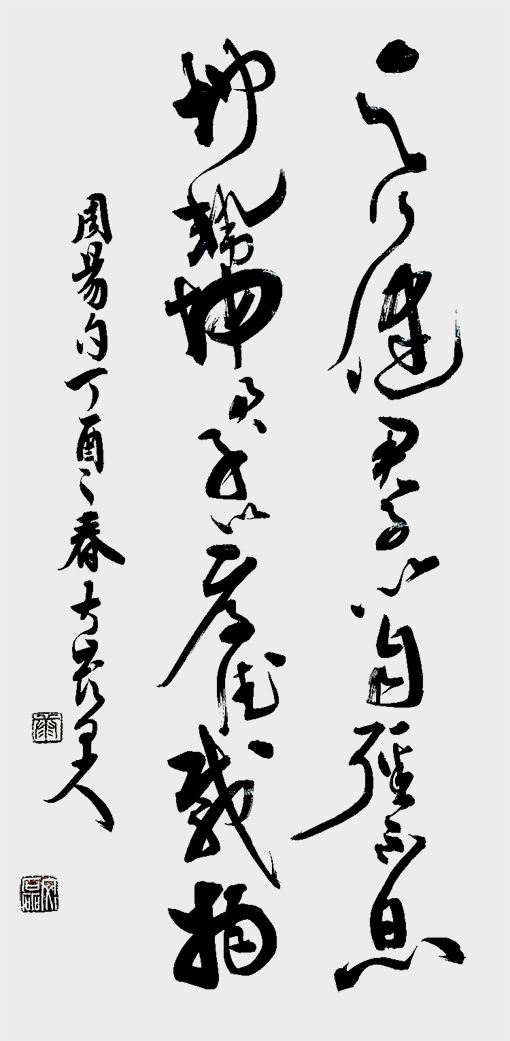 天行健君子以自强不息
地势坤君子以厚德载物
周易句丁酉之春古嵩里人